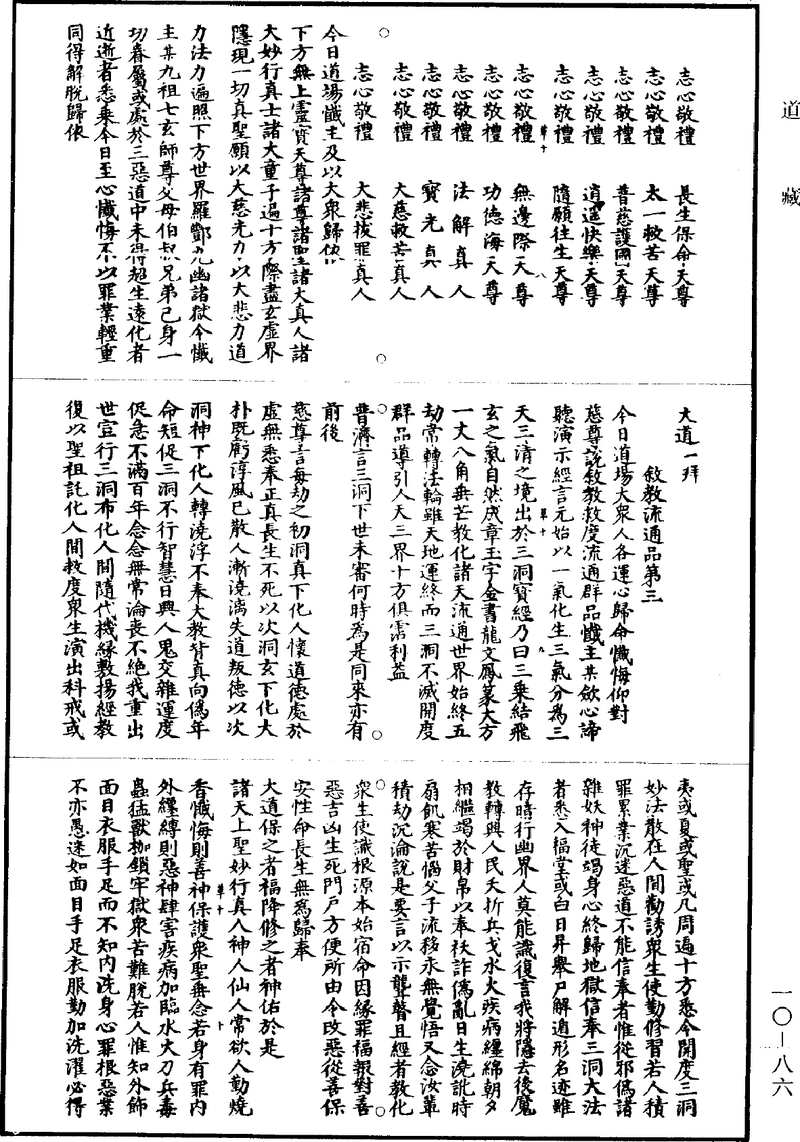 道藏
志心敬禮 長生保命天尊
志心敬禮 太一救苦天尊
志心敬禮 普慈護國天尊
志心敬禮 逍遙快樂天尊
志心敬禮 隨願往生天尊
志心敬禮 無邊際天尊
志心敬禮 功德海天尊
志心敬禮 法解真人
志心敬禮 寶光真人
志心敬禮 大慈救苦真人
志心敬禮 大悲拔罪真人
今日道場懺主及以大衆歸依
下方無上靈寶天尊諸尊諸聖諸大真人諸
大妙行真士諸大童子遍十方際盡玄虛界
隱現一切真聖願以大慈光力以大悲力道
力法力遍照下方世界羅酆九幽諸獄今懺
主某九祖七玄師尊父母伯叔兄弟己身一
切眷屬或處於三惡道中未得超生遠化者
近逝者悉乘今日至心懺悔不以罪業輕重
同得解脫歸依
大道一拜
敘教流通品第三
今日道場大衆人各運心歸命懺悔仰對
慈尊說敘教救度流通群品懺主某斂心諦
聽演示經言元始以一氣化生三氣分為三
天三清之境出於三洞寶經乃曰三乘結飛
玄之氣自然成章玉字金書龍文鳳篆大方
一丈八角垂芒教化諸天流通世界始終五
劫常轉法輪雖天地運終而三洞不滅開度
群品導引人天三界十方俱霑利益
普濟言三洞下世未審何時為是同來亦有
前後
慈尊言每劫之初洞真下化人懷道德處於
虛無悉奉正真長生不死以次洞玄下化大
朴既虧淳風已散人漸澆漓失道叛德以次
洞神下化人轉澆浮不奉大教背真向偽年
命短促三洞不行智慧日興人鬼交雜運度
促急不滿百年念念無常淪喪不絕我重出
世宣行三洞布化人間隨代機緣敷揚經教
復以聖祖託化人間救度衆生演出科戒或
夷或夏或聖或凡周遍十方悉令開度三洞
妙法散在人間勸誘衆生使勤修習若人積
罪累業沉迷惡道不能信奉者惟從邪偽諸
雜妖神徒竭身心終歸地獄信奉三洞大法
者悉入福堂或白日昇舉尸解遁形名迹雖
存時行幽界人莫能識復言我將隱去後魔
教轉興人民夭折兵戈水火疾病纏綿朝夕
相繼竭於財帛以奉袄詐偽亂日生澆訛時
扇飢寒苦惱父子流移永無覺悟又念汝輩
積劫沉淪說是要言以示聾瞽且經者教化
衆生使識根源本始宿命因緣罪福報對善
惡吉凶生死門戶方便所由令改惡從善保
安性命長生無為歸奉
大道保之者福降修之者神佑於是
諸天上聖妙行真人神人仙人常欲人勤燒
香懺悔則善神保護衆聖垂念若身有罪內
外纏縛則惡神肆害疾病加臨水火刀兵毒
蟲猛獸枷鎖牢獄衆苦難脫若人惟知外飾
面目衣服手足而不知內洗身心罪根惡業
不亦愚迷如面目手足衣服勤加洗濯必得
一〇－八六